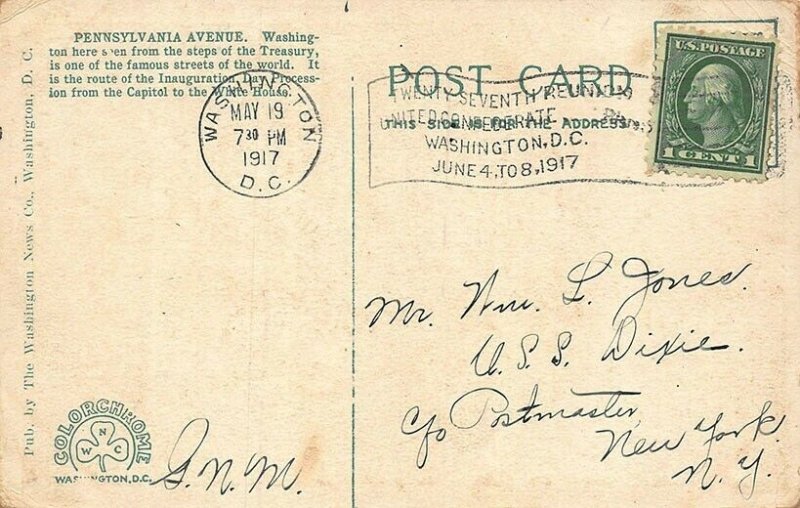 PENNSYLVANIA AVENUE. Washing-
ton here seen from the steps of the Treasury,
is one of the famous streets of the world. It
is the route of the Inauguration Day Process-
ion from the Capitol to the White House.
WASHINGTON
MAY 19
7 30 PM
1917
D.C.
Pub. by The Washington News Co., Washington, D. C.
COLORCHROME
W N C
WASHINGTON, D.C.
G. N. M.
POST CARD
THIS SIDE IS FOR THE ADDRESS
TWENTY SEVENTH REUNION
UNITED CONFEDERATE
WASHINGTON, D.C.
JUNE 4, TO 8, 1917
U.S. POSTAGE
1 CENT 1
Mr. Wm. L. Jones.
U. S. S. Dixie.
c/o Postmaster,
New York.
N. Y.